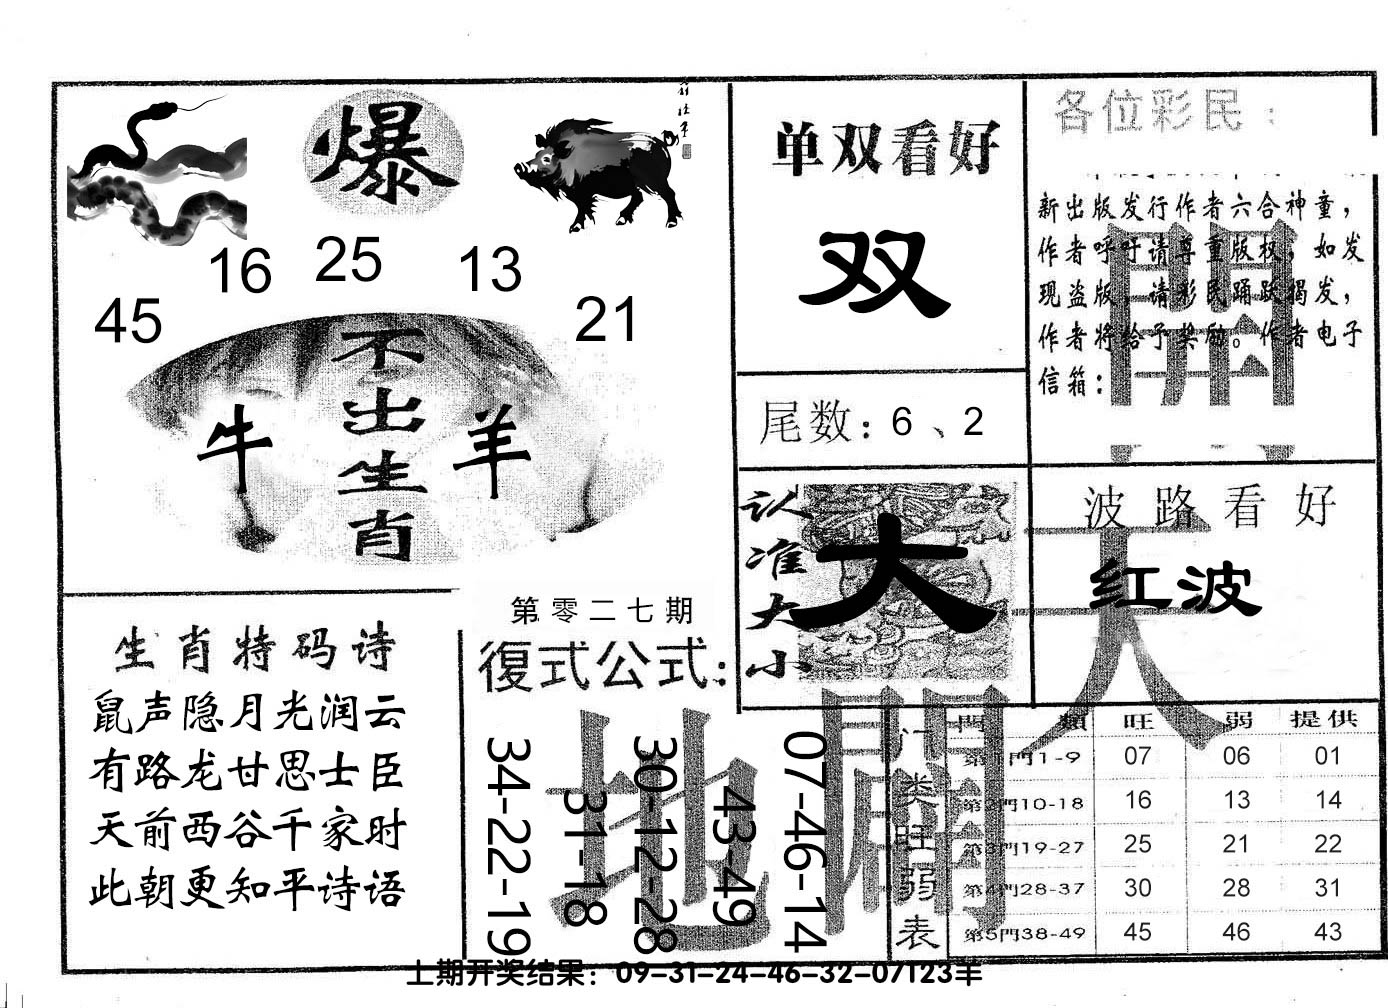 爆
16
25
13
45
21
不出生肖
牛
羊
单双看好
双
尾数：6、2
各位彩民：
新出版发行作者六合神童，
作者呼吁请尊重版权，如发
现盗版，请彩民踊跃揭发，
作者将给予奖励。作者电子
信箱：
開
认准大小
大
波路看好
红波
天
生肖特码诗
鼠声隐月光润云
有路龙甘思士臣
天前西谷千家时
此朝更知平诗语
第零二七期
復式公式：
34-22-19
31-18
30-12-28
43-49
07-46-14
地
門类旺弱表
門類 旺 弱 提供
第1門1-9 07 06 01
第2門10-18 16 13 14
第3門19-27 25 21 22
第4門28-37 30 28 31
第5門38-49 45 46 43
上期开奖结果：09-31-24-46-32-07T23羊